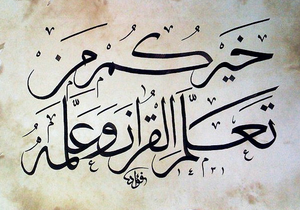 خَيْرُكُمْ مَنْ
تَعَلَّمَ الْقُرْآنَ وَعَلَّمَهُ
١٤٢١